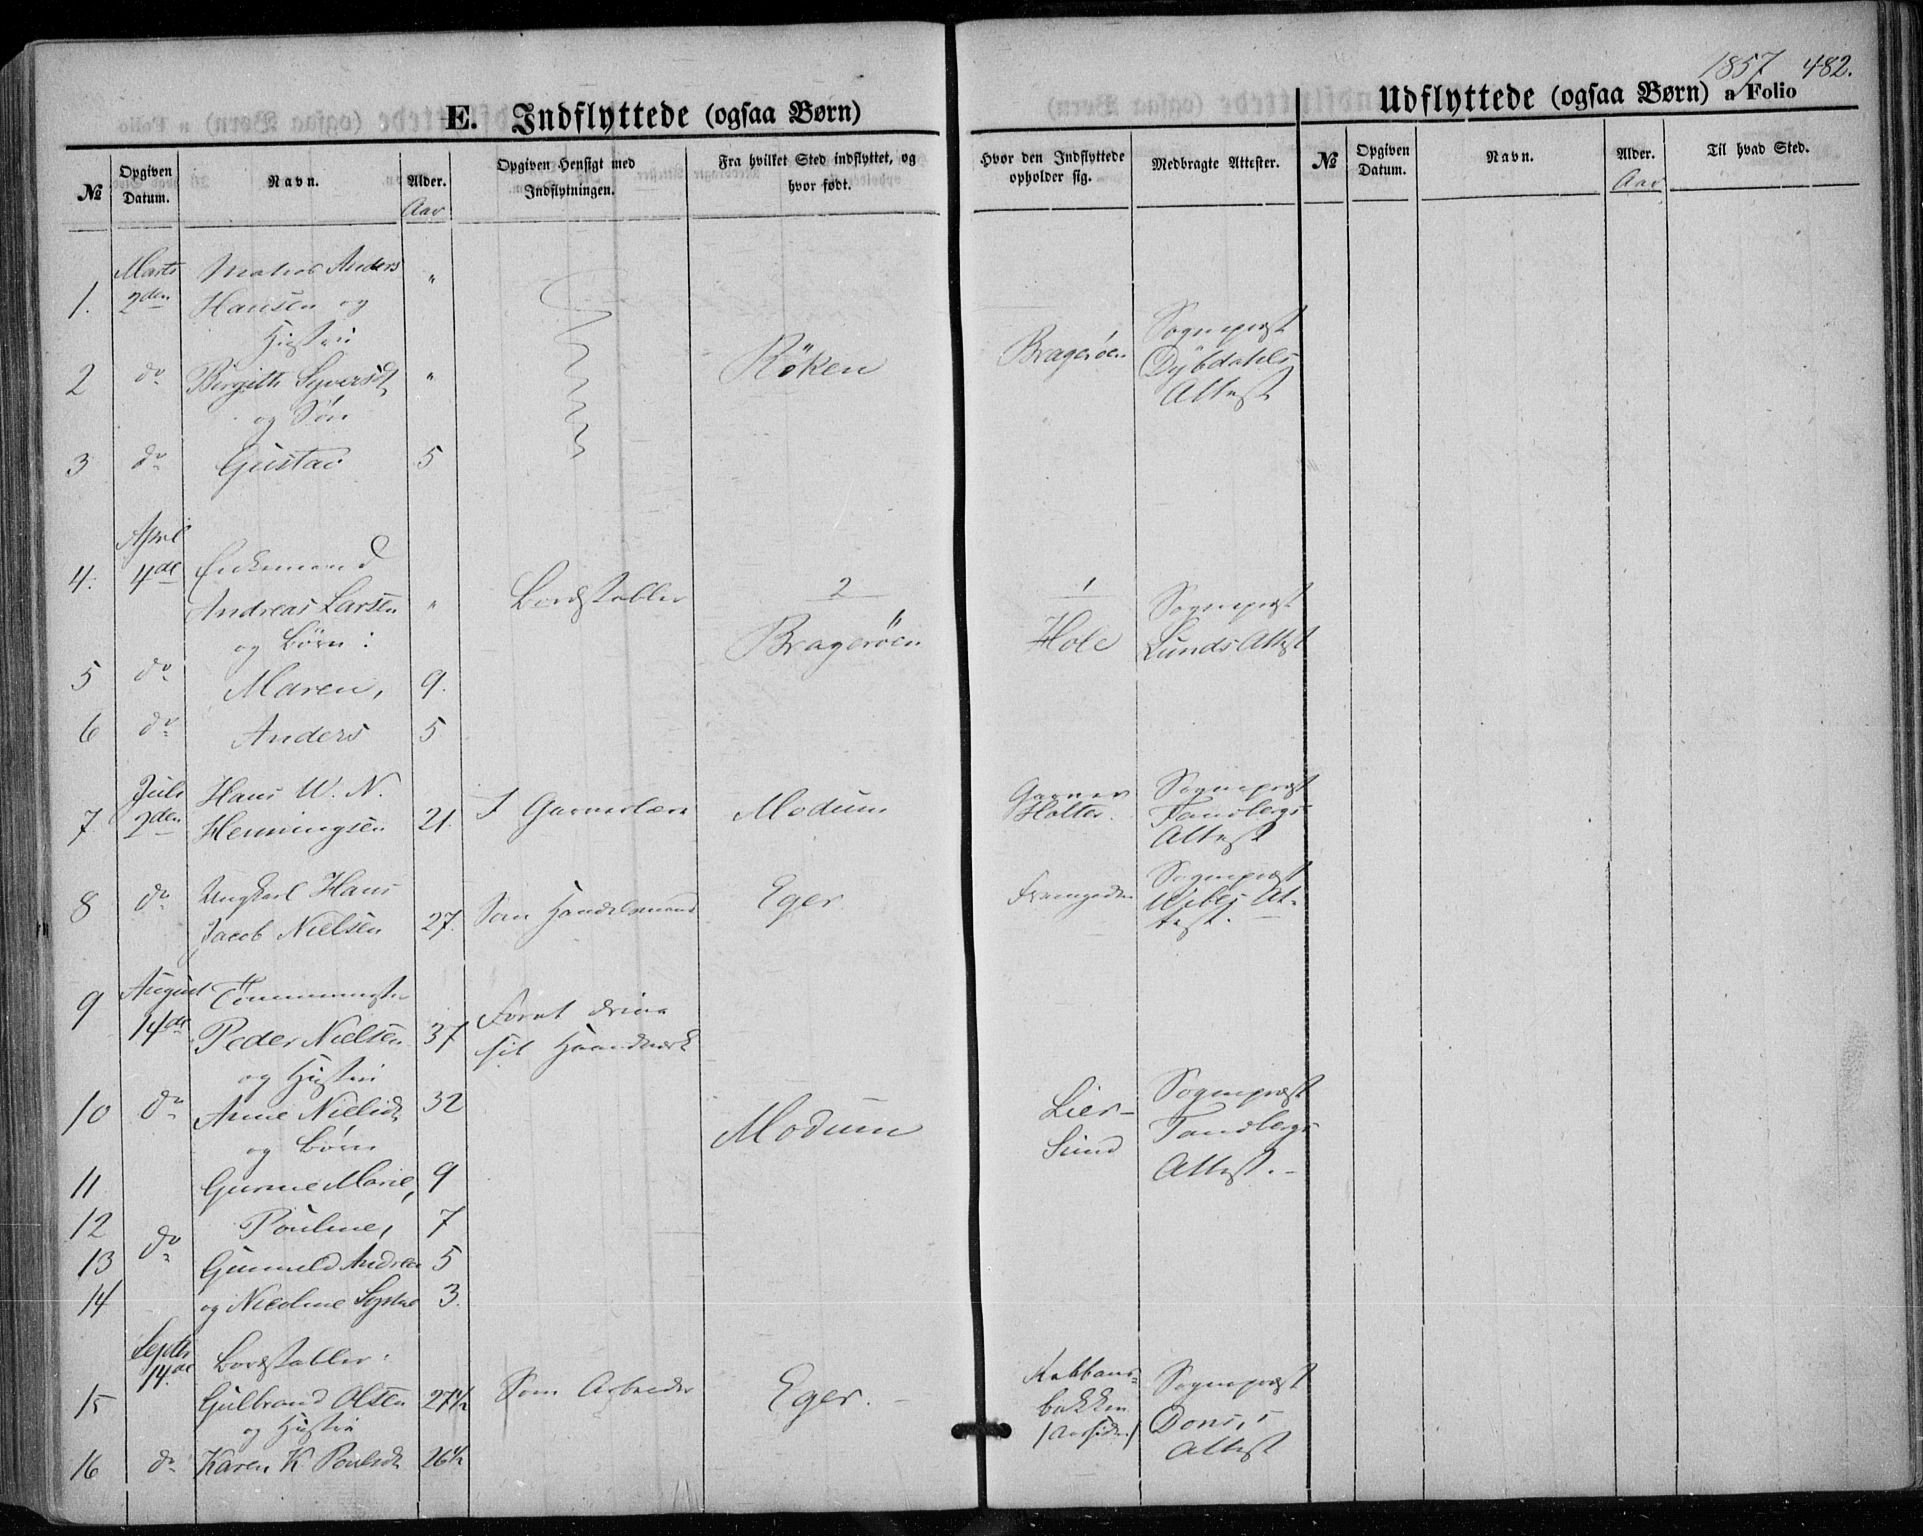 1857 482.
E. Indflyttede (ogsaa Børn)
Udflyttede (ogsaa Børn) a Folio
№
Opgiven Datum.
Navn.
Alder.
Aar
Opgiven Hensigt med Indflytningen.
Fra hvilket Sted indflyttet, og hvor født.
Hvor den Indflyttede opholder sig.
Medbragte Attester.
№
Opgiven Datum.
Navn.
Alder.
Aar
Til hvad Sted.
Marts Anders "
1. 2den Hansen og
Hustru
2 do Birgith Syversdt "
og Søn
3 do Gustav 5
Röken
Bragerøen
Sogneprest
Dybdahls
Attest
April
4. 4de Enkemand
Andreas Larsen "
og Børn:
5 do Maren, 9.
6 do Anders 5
Bordstabler
2
Bragerøen
1
Hole
Sogneprest
Lunds Attest
Juli Hans W. N.
7 2den Henningsen 21. I Garverlære Modum
Garver
Holter.
Sogneprest
Tandbergs
Attest
8 do Ungkarl Hans
Jacob Nielsen 27. Som Handelsmand Eger
Sogneprest
At-
test.
9 August Tømmermester
14de Peder Nielsen 37
og Hustru
For at drive
sit Haandværk
10 do Anne Nielsdt 32
og Børn
Modum
Lier-
Sund
Sogneprest
Tandbergs
Attest.-
11 Gunne Marie, 9
12 Pouline, 7
do
13 Gunnild Andrea 5
14 og Nicoline 3.
Septbr
14de Bordstabler
15 Gulbrand Olsen 27½ Som Arbeider Eger. -
og Hustru
bakken
Sogneprest
Dons's
Attest
16 do Karen K Poulsdt 26½